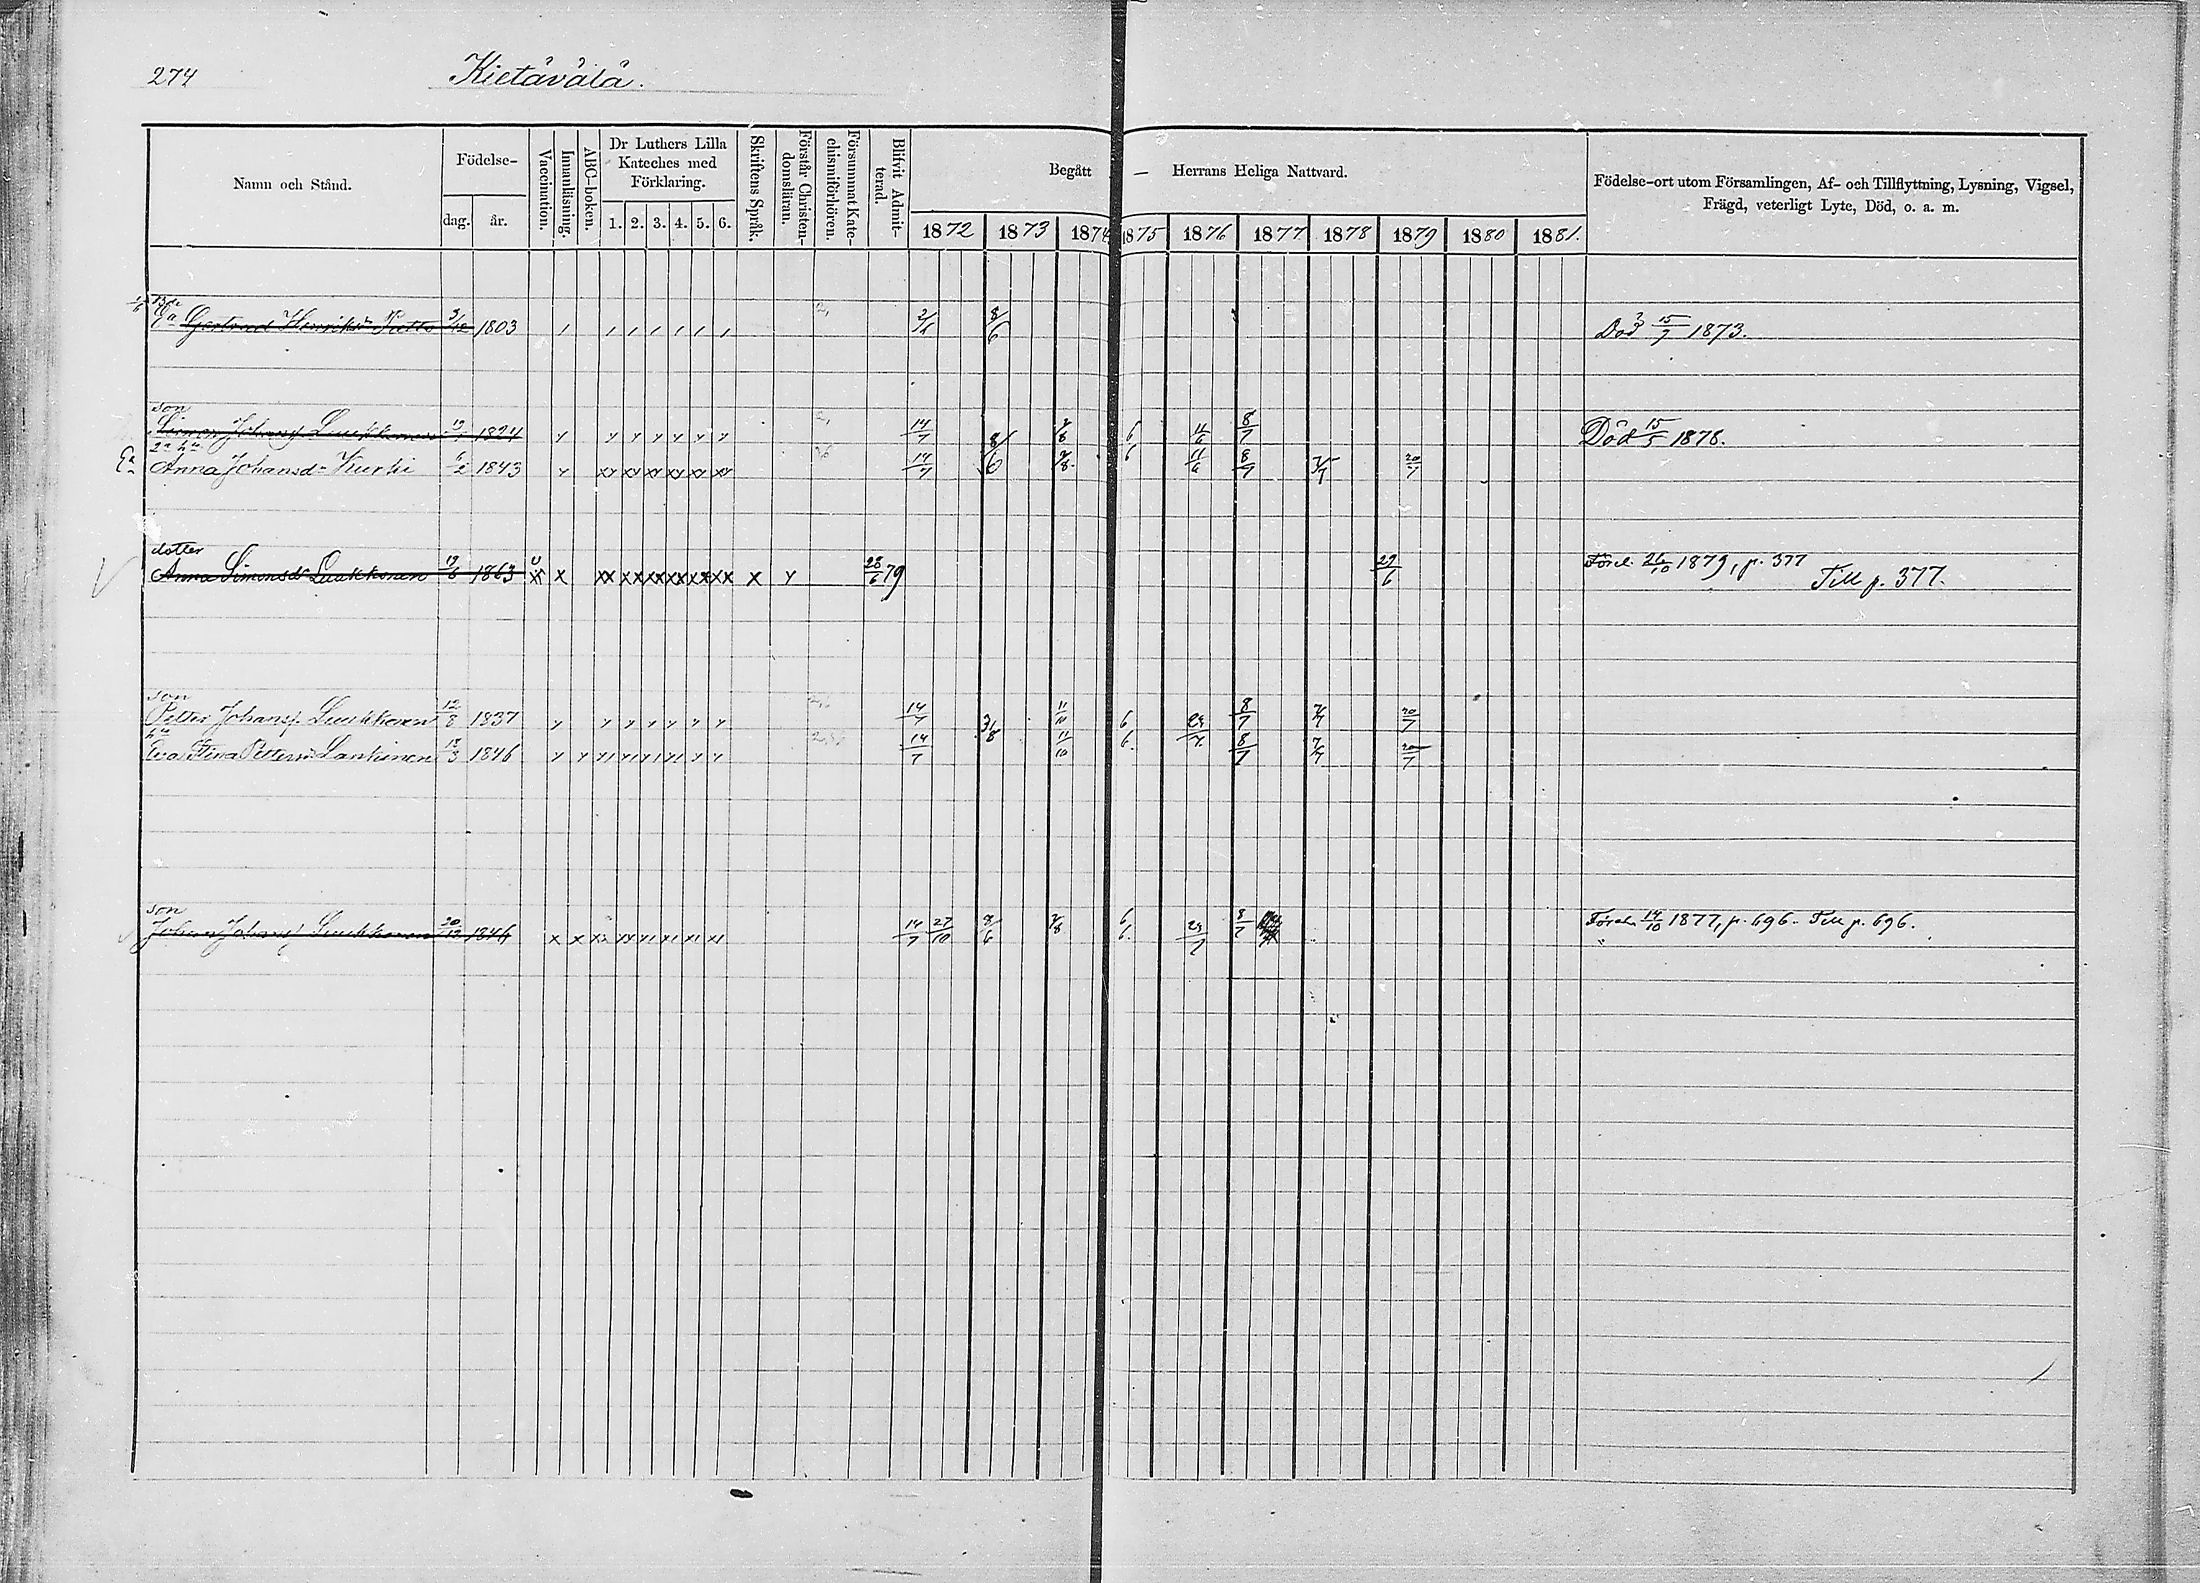 274 Kietävälä.
Namn och Stånd.
Födelse-
dag. år.
Vaccination.
Innanläsning.
ABC-boken.
Dr Luthers Lilla Kateches med Förklaring.
1. 2. 3. 4. 5. 6.
Skriftens Språk.
Förstår Christendomsläran.
Försummat Katechismiförhören.
Blifvit Admitterad.
Begått — Herrans Heliga Nattvard.
1872 1873 1874 1875 1876 1877 1878 1879 1880 1881.
Födelse-ort utom Församlingen, Af- och Tillflyttning, Lysning, Vigsel, Frägd, veterligt Lyte, Död, o. a. m.
Gertrud Henriksdr Putto 3/12 1803 8/6 Död 15/7 1873.
son
Simon Johansf Luukkonen 1824 14/7 6/6 11/6 8/7 Död 15/5 1878.
2a h:u
Ea Anna Johansdr Kurki 1843 14/7 8/6 6/6 11/6 8/7 20/7
dotter
Anna Simonsdr Luukkonen 19/6 1863 28/6 79 29/6 Förel. 26/10 1879, p. 377 Till p. 377.
son
Petter Johansf. Luukkonen 12/8 1837 14/7 11/10 6/6 8/7 7/7 20/7
Eva Stina Pettersdr Lankinen 18/3 1846 14/7 11/10 8/7 7/7 20/7
son
Johan Johansf Luukkonen 20/12 1846 14/7 27/10 8/6 6/6 8/7 14/10 1877, p. 696. Till p. 696.